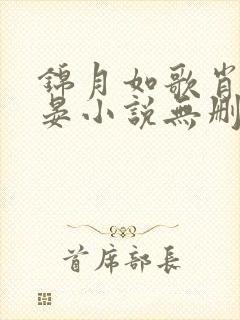 錦月如歌肖
晏小說無刪
首席部長